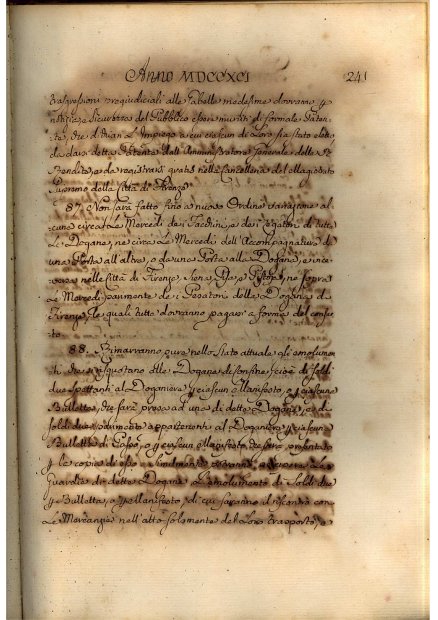 Anno MDCCXCI 241
trasgressioni pregiudiciali alle Gabelle medesime dovranno p
notizia, e sicurezza del Pubblico essere muniti di formale Paten
te, che di chiari l'Impiego a cui ciascun di Loro sia stato eletto
da darsi detta Patente dall'Amministratore Generale delle RR
Rendite, e da registrarsi gratis nella Cancelleria del Magistrato
Supremo della Città di Firenze
87. Non sarà fatto fino a nuovo Ordine variazione al
cuna circa Le Mercedi dei Facchini, e dei Legatori di tutte
Le Dogane, ne circa Le Mercedi dell'Accompagnatura da
una Porta all'altra, o da una Porta alla Dogana, e vice
versa nelle Città di Firenze, Siena, Pisa, e Pistoia, ne sopra
Le Mercedi parimente dei Pesatori della Dogana di
Firenze, le quali tutte dovranno pagarsi a forma del consue
to
88. Rimarranno pure nello stato attuale gli emolumen
ti che si riguardano alle Dogane di confine, cioè di soldi
due spettanti al Doganiere p ciascun Manifesto, o p ciascuna
Bulletta, che sarà presa ad una di dette Dogane, e di
soldi due parimente appartenenti al Doganiere p ciascuna
Bulletta di Passo, o p ciascun Manifesto che sarà presentato
p le copie di esso e finalmente dovranno avere Le
Guardie di dette Dogane L'emolumento di Soldi due
p Bulletta, o p Manifesto di cui faranno il riscontro con
Le Mercanzie nell'atto solamente del Loro trasporto, e